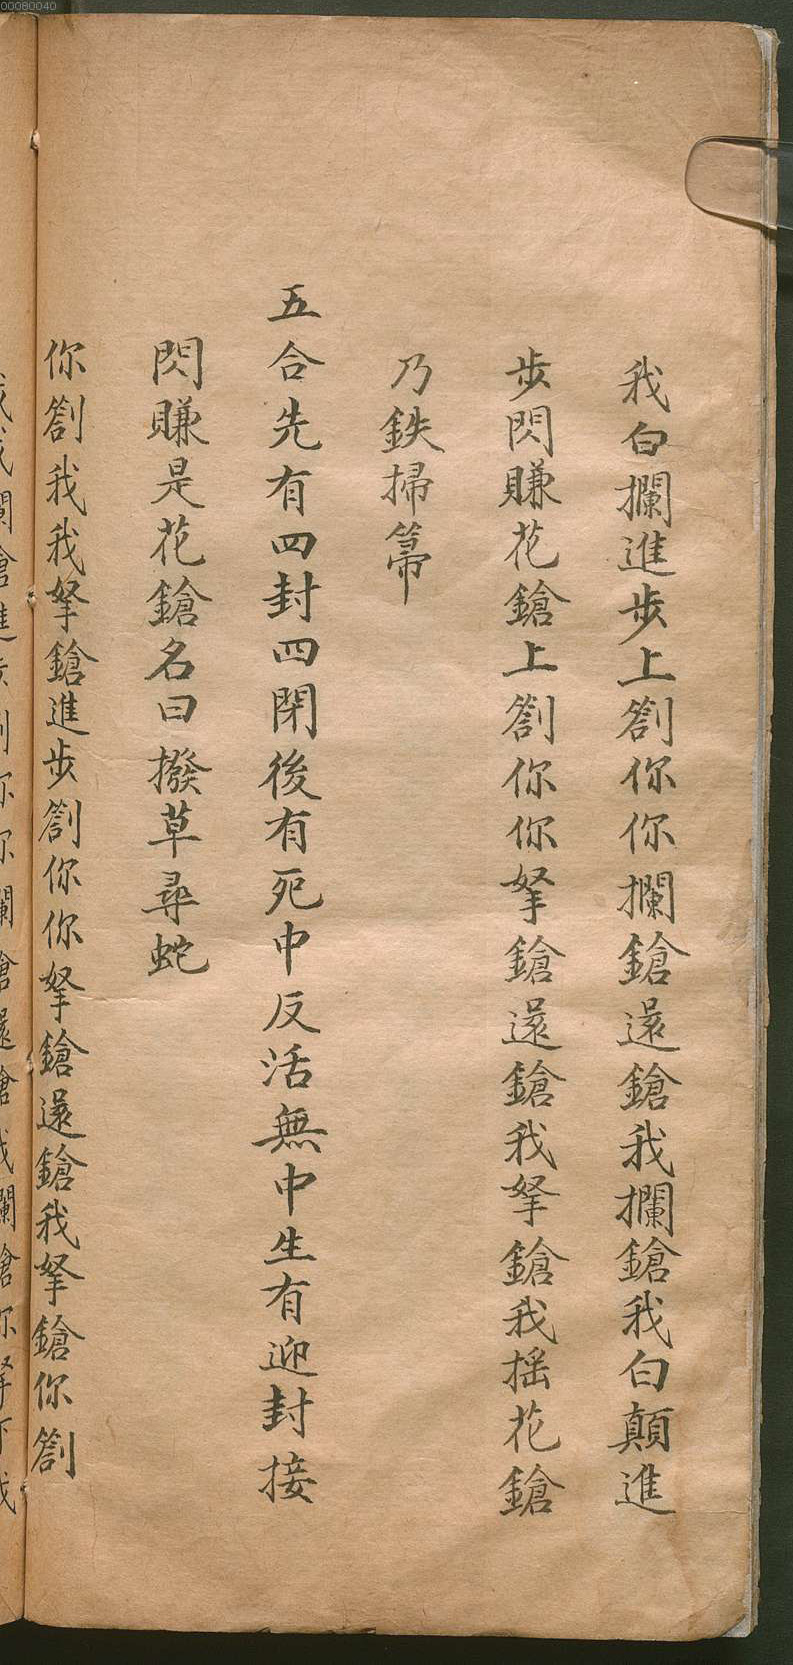 00080040
我白攔進步上劄你你攔鎗還鎗我攔鎗我白顛進
步閃賺花鎗上劄你你拏鎗還鎗我拏鎗我搖花鎗
乃鉄掃箒
五合先有四封四閉後有死中反活無中生有迎封接
閃賺是花鎗名曰撥草尋蛇
你劄我我拏鎗進步劄你你拏鎗還鎗我拏鎗你劄